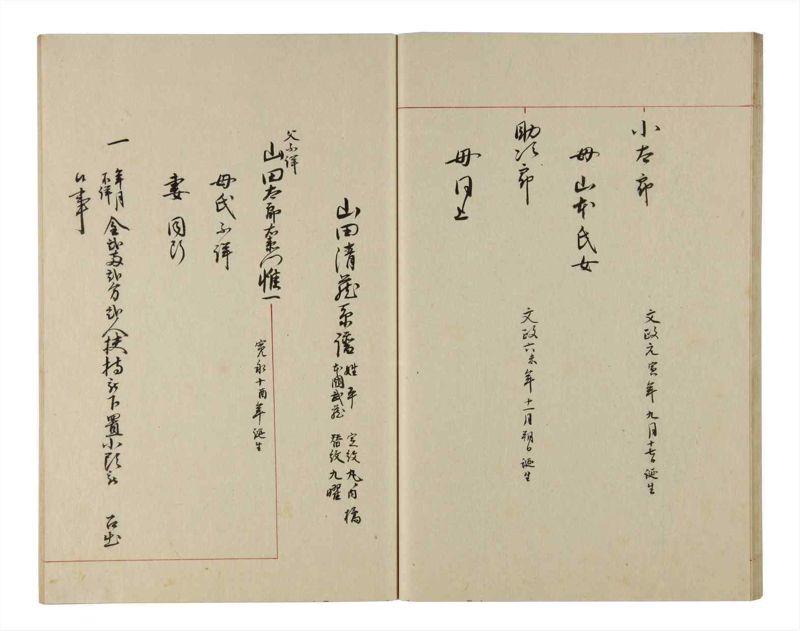 小太郎
文政元寅年九月十七日誕生
母山本氏女
助次郎
文政六未年十一月朔日誕生
母同上
山田清蔵系譜
姓平 定紋丸ノ内橘
本國武蔵 替紋九曜
父不詳
山田太郎右衛門惟一
寛永十酉年誕生
母氏不詳
妻同断
一 年月不詳 金弐両弐分弐人扶持被下置小頭被 召出
候事